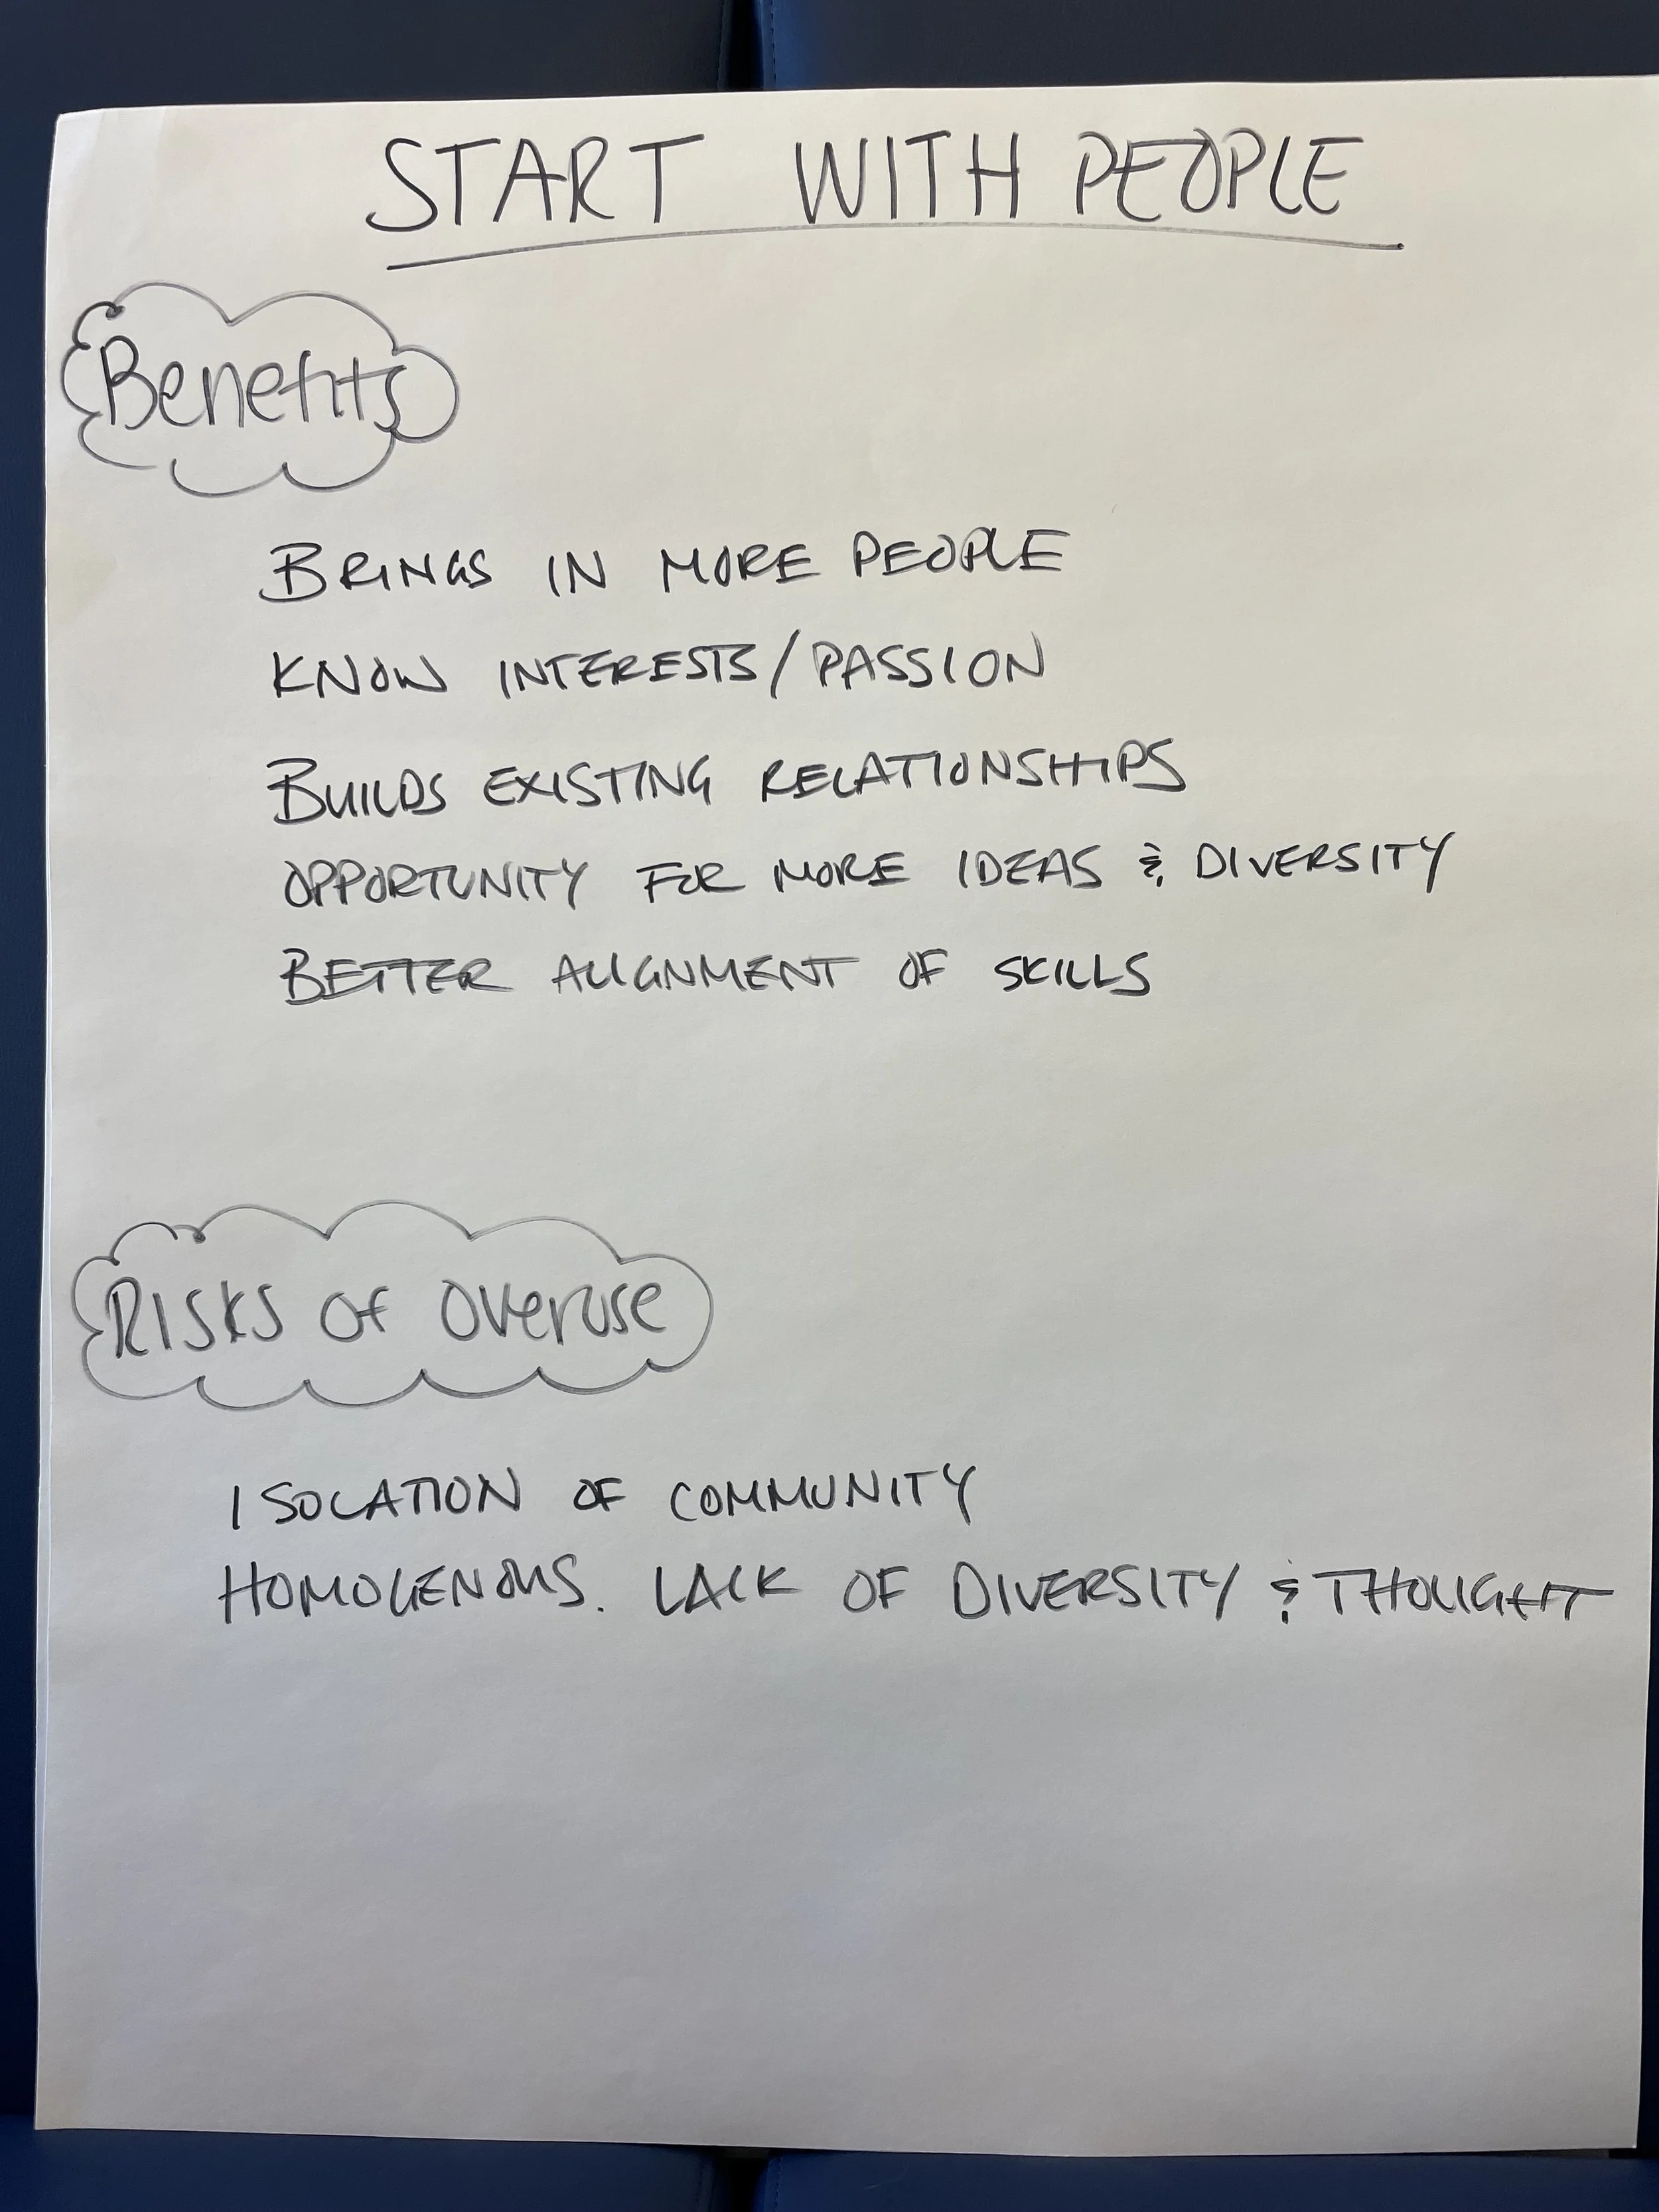 START WITH PEOPLE
Benefits
BRINGS IN MORE PEOPLE
KNOW INTERESTS/PASSION
BUILDS EXISTING RELATIONSHIPS
OPPORTUNITY FOR MORE IDEAS & DIVERSITY
BETTER ALIGNMENT OF SKILLS
RISKS OF OVERUSE
ISOLATION OF COMMUNITY
HOMOGENOUS. LACK OF DIVERSITY & THOUGHT